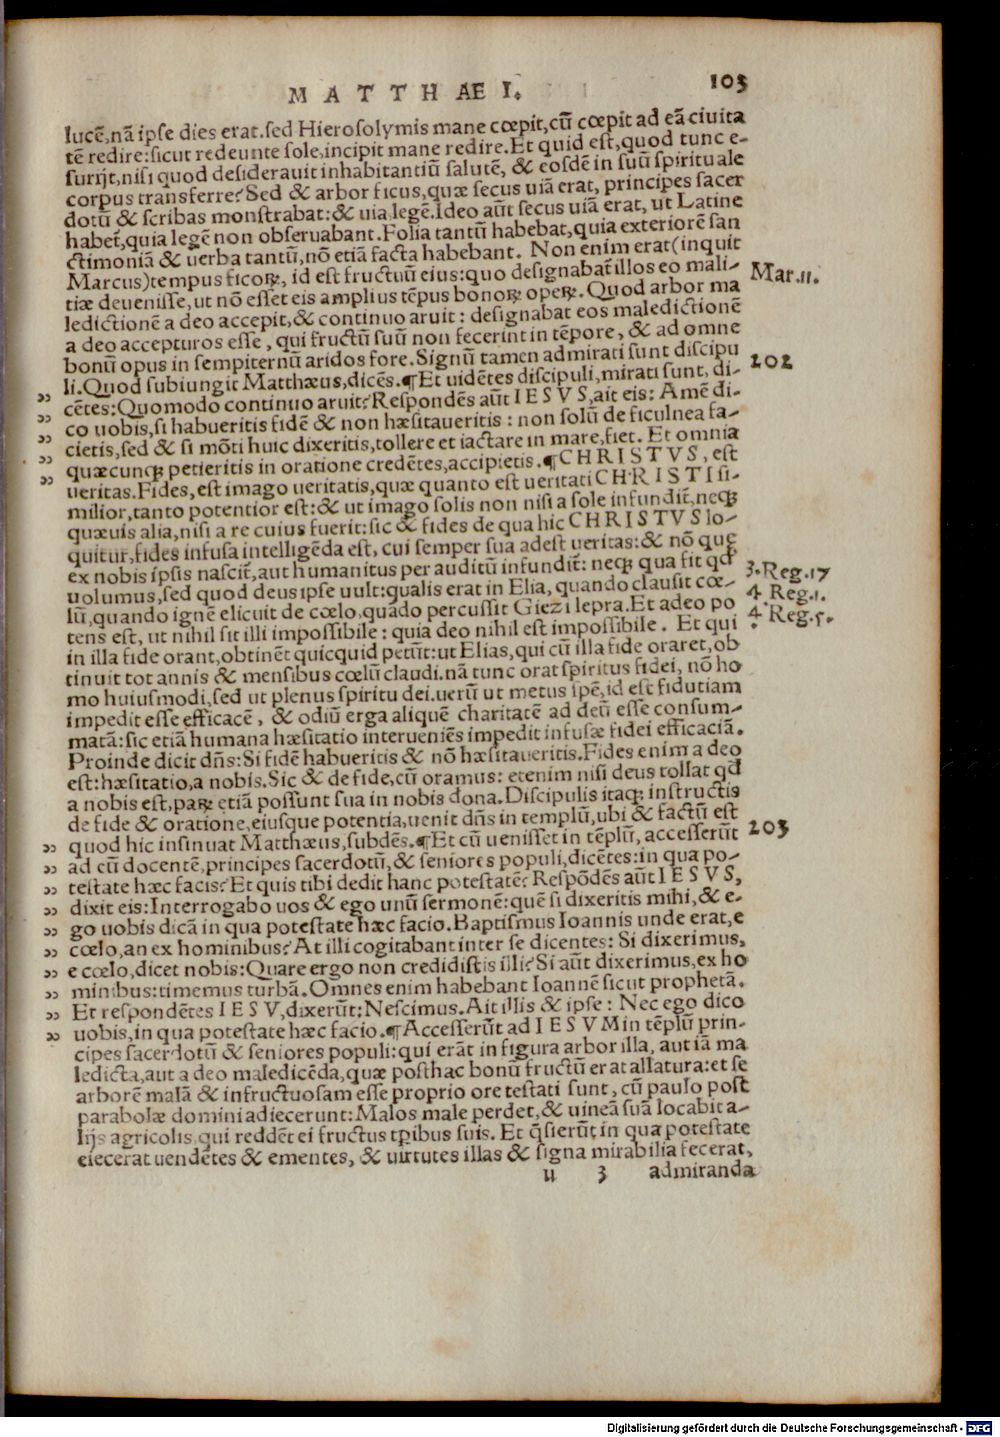 M A T T H AE I. 103
lucē,nā ipse dies erat.sed Hierosolymis mane cœpit,cū cœpit ad eā ciuita
tē redire:sicut redeunte sole,incipit mane redire.Et quid est,quod tunc e-
surijt,nisi quod desiderauit inhabitantiū salutē, & eosdē in suū spirituale
corpus transferre? Sed & arbor ficus,quæ secus uiā erat, principes sacer
dotū & scribas monstrabat:& uia legē.Ideo aūt secus uiā erat, ut Latine
habet̄,quia legē non obseruabant.Folia tantū habebat,quia exteriorē san
ctimoniā & uerba tantū,nō etiā facta habebant. Non enim erat(inquit
Marcus)tempus ficoꝝ, id est fructuū eius:quo designabat̄ illos eo mali- Mar.11.
tiæ deuenisse,ut nō esset eis amplius tēpus bonoꝝ opeꝝ.Quod arbor ma
ledictionē a deo accepit,& continuo aruit: designabat eos maledictionē
a deo accepturos esse, qui fructū suū non fecerint in tēpore, & ad omne
bonū opus in sempiternū aridos fore.Signū tamen admirati sunt discipu 202
li.Quod subiungit Matthæus,dicēs.¶Et uidētes discipuli,mirati sunt, di-
cētes:Quomodo continuo aruit? Respondēs aūt I E S V S,ait eis: Amē di-
co uobis,si habueritis fidē & non hæsitaueritis: non solū de ficulnea fa-
cietis,sed & si mōti huic dixeritis,tollere et iactare in mare,fiet. Et omnia
quæcunqꝫ petieritis in oratione credētes,accipietis.¶C H R I S T V S, est
ueritas.Fides,est imago ueritatis,quæ quanto est ueritati C H R I S T I si-
milior,tanto potentior est:& ut imago solis non nisi a sole infundit̄,neqꝫ
quæuis alia,nisi a re cuius fuerit:sic & fides de qua hic C H R I S T V S lo-
quitur,fides infusa intelligēda est, cui semper sua adest ueritas:& nō quę
ex nobis ipsis nascit̄,aut humanitus per auditū infundit̄: neqꝫ qua fit qđ 3.Reg.17
uolumus,sed quod deus ipse uult:qualis erat in Elia, quando clausit cœ- 4 Reg.1.
lū,quando ignē elicuit de cœlo,quādo percussit Giezi lepra.Et adeo po 4 Reg.5.
tens est, ut nihil sit illi impossibile: quia deo nihil est impossibile. Et qui
in illa fide orant,obtinēt quicquid petūt:ut Elias,qui cū illa fide oraret,ob
tinuit tot annis & mensibus cœlū claudi.nā tunc orat spiritus fidei, nō ho
mo huiusmodi,sed ut plenus spiritu dei.uerū ut metus spē,id est fidutiam
impedit esse efficacē, & odiū erga aliquē charitatē ad deū esse consum-
matā:sic etiā humana hæsitatio interueniēs impedit infusæ fidei efficaciā.
Proinde dicit dn̄s:Si fidē habueritis & nō hæsitaueritis.Fides enim a deo
est:hæsitatio,a nobis.Sic & de fide,cū oramus: etenim nisi deus tollat qđ
a nobis est,paꝝ etiā possunt sua in nobis dona.Discipulis itaqꝫ instructis
de fide & oratione,eiusque potentia,uenit dn̄s in templū,ubi & factū est
quod hic insinuat Matthæus,subdēs.¶Et cū uenisset in tēplū, accesserūt 203
ad eū docentē,principes sacerdotū,& seniores populi,dicētes:in qua po-
testate hæc facis? Et quis tibi dedit hanc potestatē? Respōdēs aūt I E S V S,
dixit eis:Interrogabo uos & ego unū sermonē:quē si dixeritis mihi,& e-
go uobis dicā in qua potestate hæc facio.Baptismus Ioannis unde erat,e
cœlo,an ex hominibus? At illi cogitabant inter se dicentes: Si dixerimus,
e cœlo,dicet nobis:Quare ergo non credidistis illi? Si aūt dixerimus,ex ho
minibus:timemus turbā.Omnes enim habebant Ioannē sicut prophetā.
Et respondētes I E S V,dixerūt:Nescimus.Ait illis & ipse: Nec ego dico
uobis,in qua potestate hæc facio.¶Accesserūt ad I E S V M in tēplū prin-
cipes sacerdotū & seniores populi:qui erāt in figura arbor illa, aut iā ma
ledicta,aut a deo maledicēda,quæ posthac bonū fructū erat allatura:et se
arborē malā & infructuosam esse proprio ore testati sunt, cū paulo post
parabolæ domini adiecerunt:Malos male perdet,& uineā suā locabit a-
lijs agricolis,qui reddēt ei fructus tp̄ibus suis. Et q̄sierūt in qua potestate
eiecerat uendētes & ementes, & uirtutes illas & signa mirabilia fecerat,
u 3 admiranda
Digitalisierung gefördert durch die Deutsche Forschungsgemeinschaft - DFG